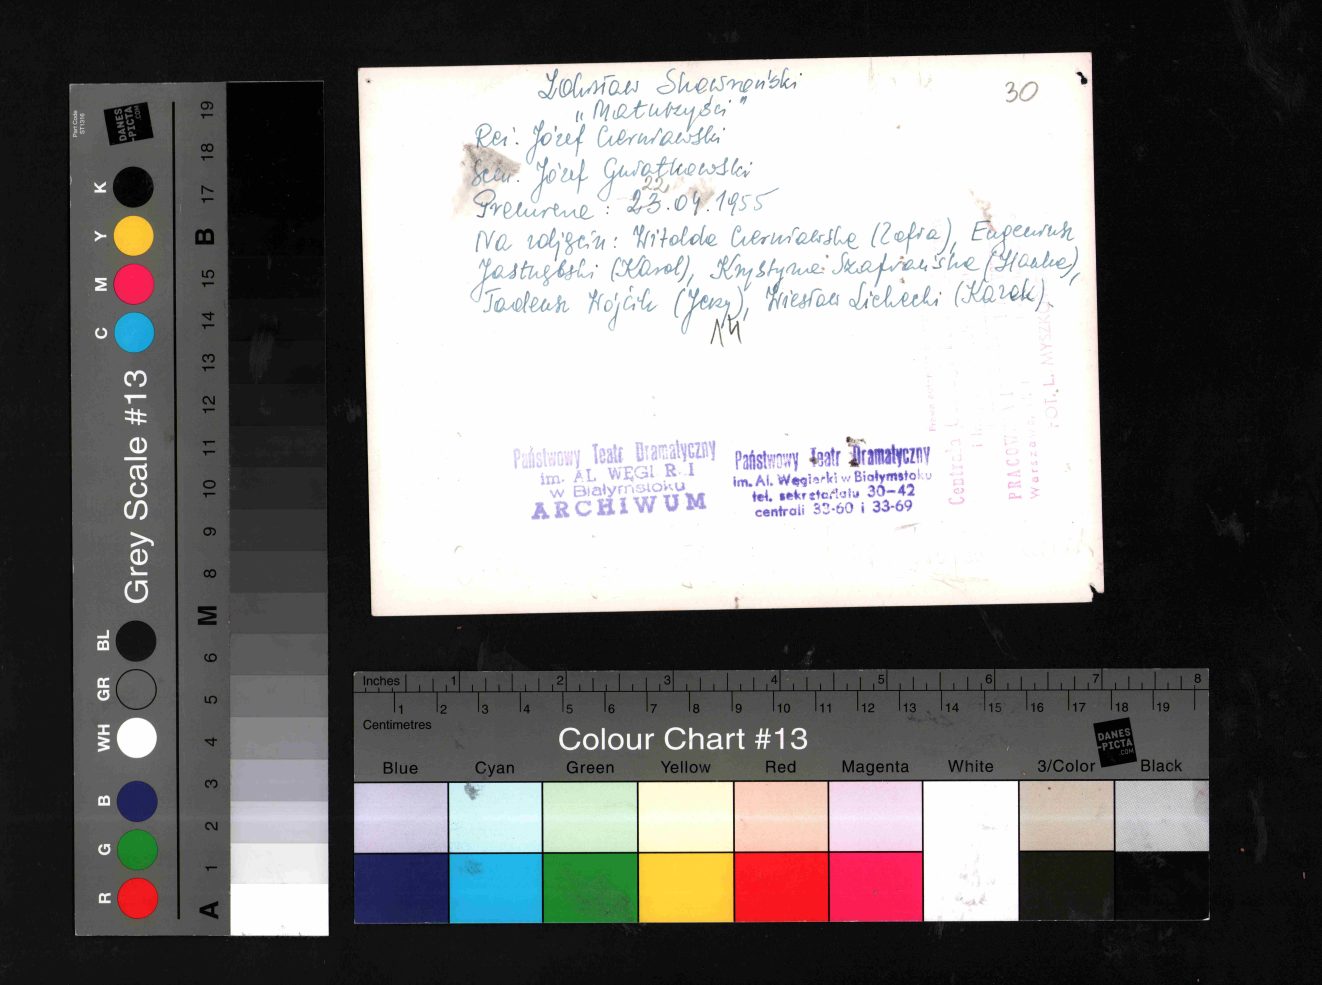 Zdzisław Skowroński
30
"Maturzyści"
Reż: Józef Czerniawski
Scen. Józef Gwiatkowski
22
Premiera: 23.04.1955
Na zdjęciu: Witolda Czerniawska (Zofia), Eugeniusz
Jastrzębski (Karol), Krystyna Szafrańska (Hanka),
Tadeusz Wójcik (Jerzy), Wiesław Lichecki (Karak)
14
Państwowy Teatr Dramatyczny
im. AL. WĘGI R I
w Białymstoku
ARCHIWUM
Państwowy Teatr Dramatyczny
im. Al. Węgierki w Białymstoku
tel. sekretariatu 30-42
centrali 33-60 i 33-69
Centrala
PRACOW
Warszawa
FOT. L. MYSZK
Part Code
ST1316
DANES
-PICTA
.COM
K Y M C
Grey Scale #13
BL GR WH B G R
A 1 2 3 4 5 6 M 8 9 10 11 12 13 14 15 B 17 18 19
Inches 1 2 3 4 5 6 7 8
1 2 3 4 5 6 7 8 9 10 11 12 13 14 15 16 17 18 19
Centimetres
Colour Chart #13
DANES
-PICTA
.COM
Blue Cyan Green Yellow Red Magenta White 3/Color Black